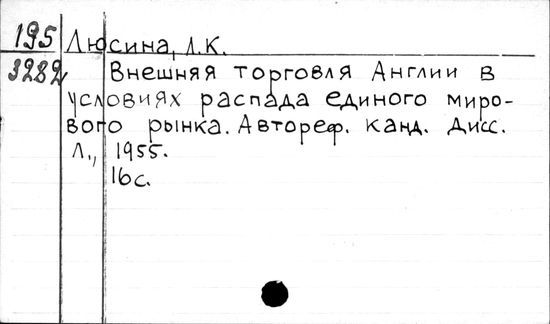 195 Люсина, Л.К.
3282 Внешняя торговля Англии в
условиях распада единого миро-
вого рынка. Автореф. канд. дисс.
Л., 1955.
16с.